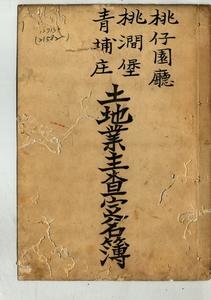 桃仔園廳
桃澗堡
青埔庄
土地業主查定名簿